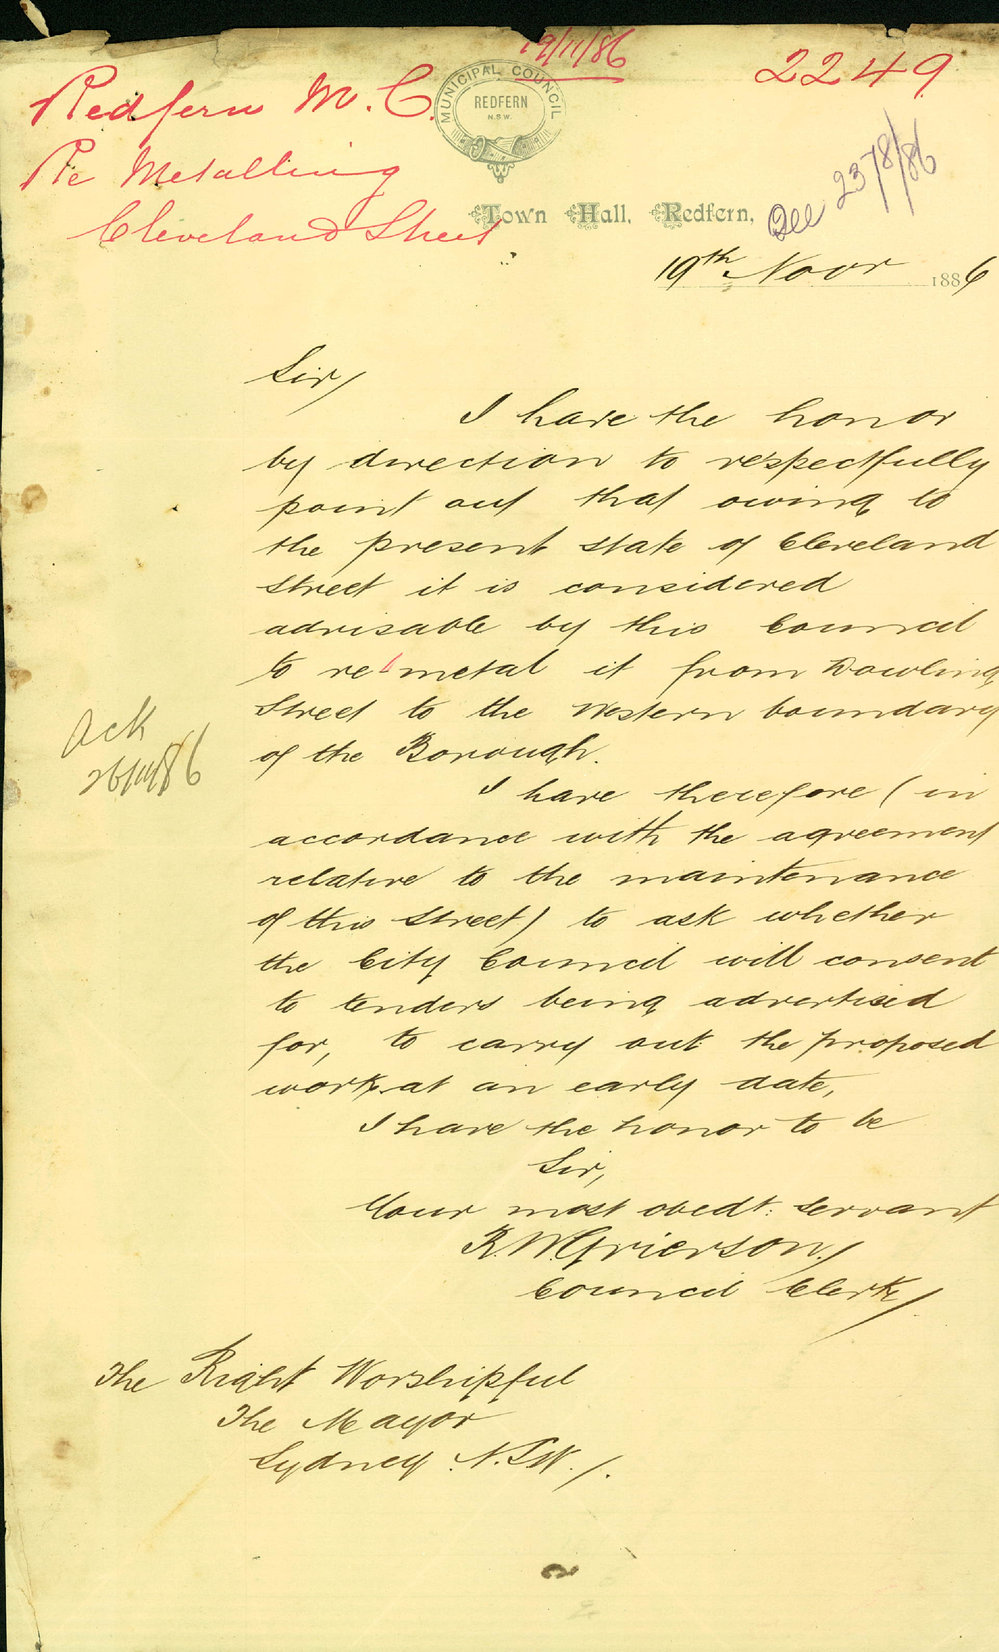 19/11/86
2249
Redfern M.C.
Re Metalling
Cleveland Street
MUNICIPAL COUNCIL
REDFERN
N.S.W.
See 2378/86
Town Hall, Redfern,
19th Novr 1886
Sir/
I have the honor
by direction to respectfully
point out that owing to
the present state of Cleveland
Street it is considered
advisable by this Council
to re metal it from Dowling
Street to the Western boundary
of the Borough.
Ack
26/11/86
I have therefore (in
accordance with the agreement
relative to the maintenance
of this Street) to ask whether
the City Council will consent
to tenders being advertised
for, to carry out the proposed
work at an early date,
I have the honor to be
Sir,
Your most obedt: servant
R.W. Grierson/
Council Clerk/
The Right Worshipful
The Mayor
Sydney N.S.W./.
2